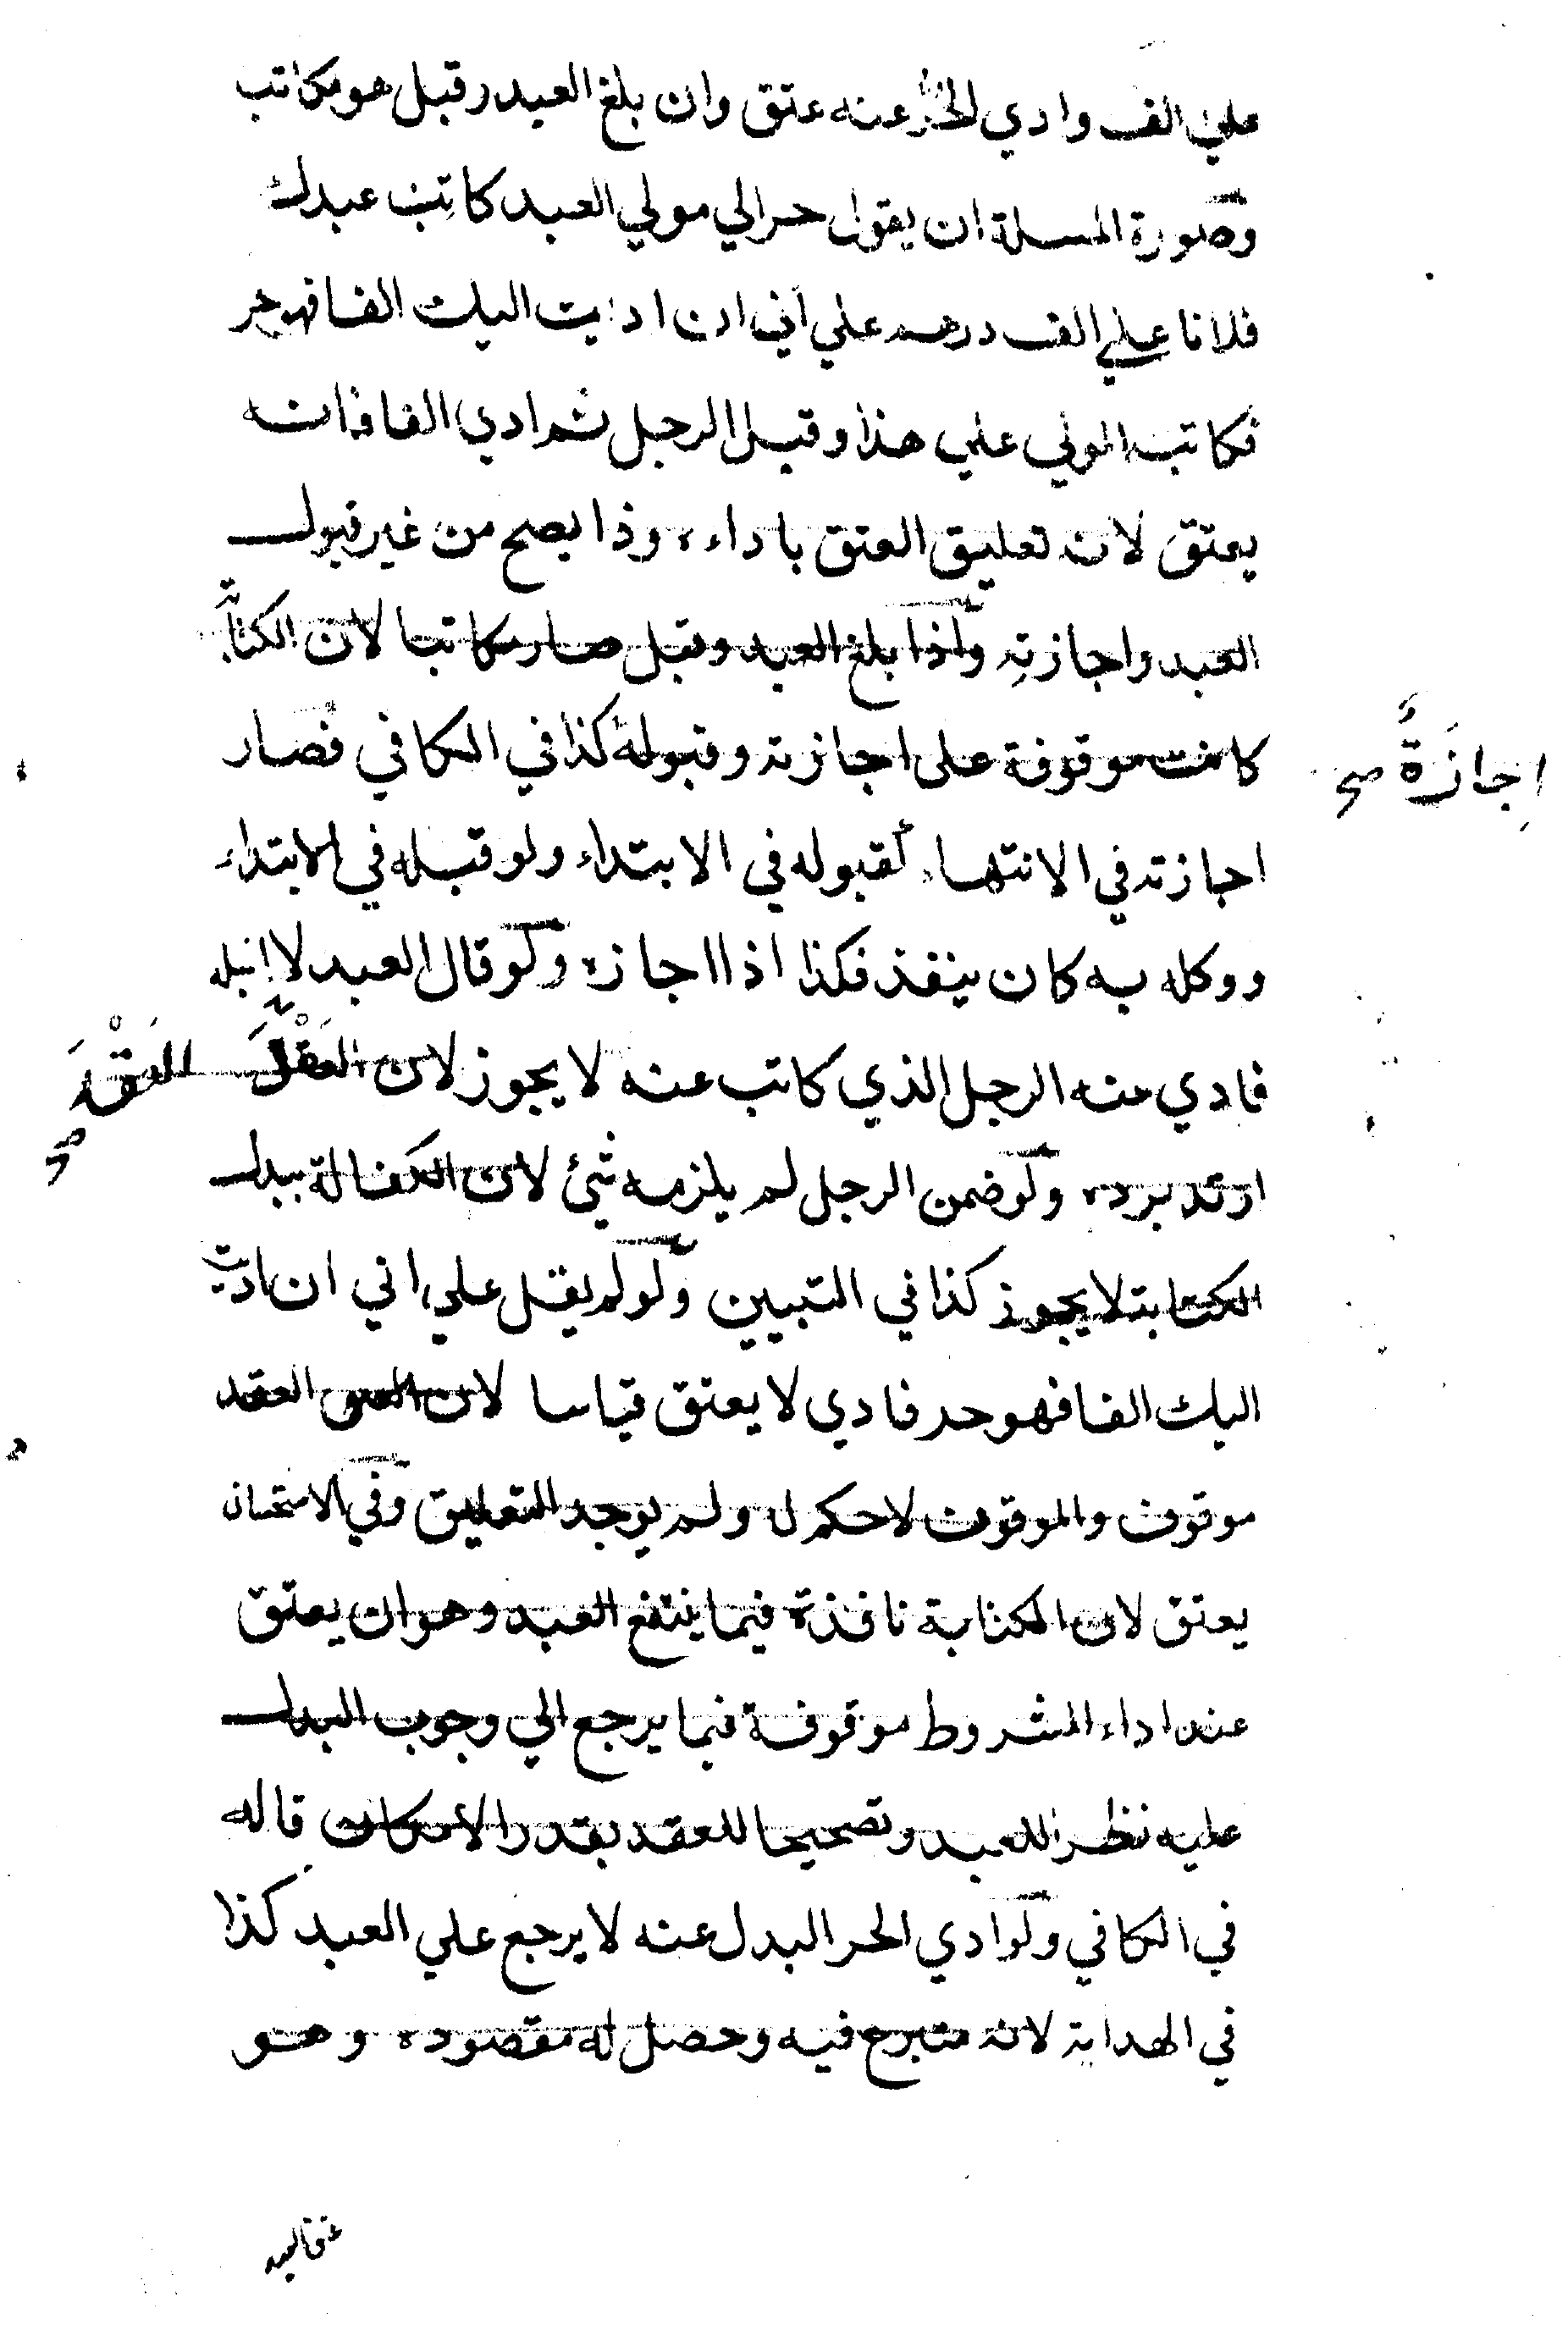 علي الف وادي الحر عنه عتق وان بلغ العبد وقبل هو مكاتب
وصورة المسلة ان يقول حر الي مولي العبد كاتب عبدك
فلانا علي الف درهم علي اني ان اديت اليك الفا فهو حر
فكاتبه المولي علي هذا وقبل الرجل ثم ادي الفا فانه
يعتق لانه تعليق العتق باداءه وذا يصح من غير قبول
العبد واجازته واذا بلغ العبد وقبل صار مكاتبا لان الكتابة
كانت موقوفة علي اجازته وقبوله كذا في الكافي فصار
اجازةٌ صح
اجازته في الانتهاء كقبوله في الابتداء ولو قبله في الابتداء
ووكله به كان ينفذ فكذا اذا اجازه ولو قال العبد لا اقبله
فادي عنه الرجل الذي كاتب عنه لا يجوز لان العقد
العَقْدَ صح
ارتد برده ولو ضمن الرجل لم يلزمه شئ لان الكفالة ببدل
الكتابة لا يجوز كذا في التبيين ولو لم يقل علي اني ان اديت
اليك الفا فهو حر فادي لا يعتق قياسا لان العقد
موقوف والموقوف لا حكم له ولم يوجد التعليق وفي الاستحسان
يعتق لان الكتابة نافذة فيما ينتفع العبد وهو ان يعتق
عند اداء المشروط موقوفة فيما يرجع الي وجوب البدل
عليه نظرا للعبد وتصحيحا للعقد بقدر الامكان قاله
في الكافي ولو ادي الحر البدل عنه لا يرجع علي العبد كذا
في الهداية لانه متبرع فيه وحصل له مقصوده وهو